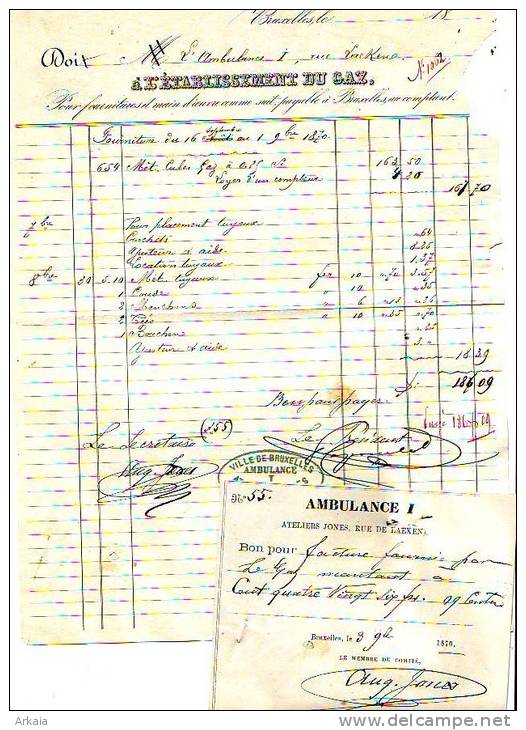 Bruxelles, le 18
Doit M L'Ambulance I, rue Laeken
N° 1862
à L'ÉTABLISSEMENT DU GAZ.
Pour fournitures et main d'œuvre comme suit, payable à Bruxelles, au comptant.
septembre
Fourniture du 16 au 1 9bre 1870
654 Mèt. Cubes Gaz à 25 163 50
Loyer d'un compteur 4 20
167 70
7bre
Pour placement tuyaux
Crochets 64
Ajusteur & aide
Location tuyaux 1.37
8bre 5.10 Mèt. tuyaux fer 10
1 Coude " 10 35
2 Manchons " 6
2 Tées " 10 35 70
1 Bouchon
Ajusteur & aide
18 39
f. 186 09
Bon pour payer
(55)
Le Secrétaire
Le Président
Aug. Jones
VILLE DE BRUXELLES
AMBULANCE
I
N° 55.
AMBULANCE I
ATELIERS JONES, RUE DE LAEKEN.
Bon pour facture fournie par
Le Gaz montant à
Cent quatre Vingt Six fr. 09 Cent
Bruxelles, le 3 9bre 1870.
LE MEMBRE DE COMITÉ,
Aug. Jones
© Arkaia
www.delcampe.net